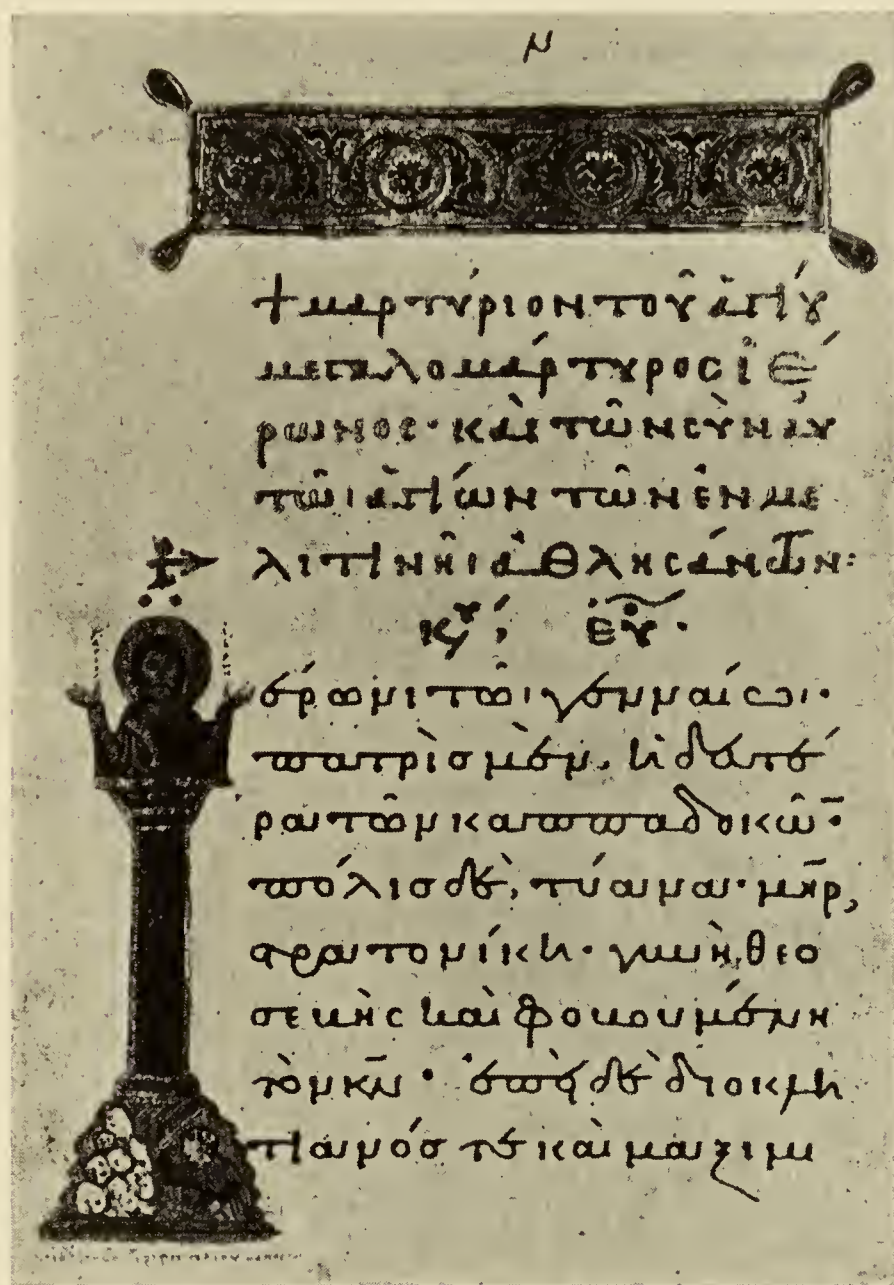 ν
+ μαρτύριον τοῦ ἁγίου
μεγαλομάρτυρος ἱέ
ρωνος· καὶ τῶν σὺν αὐ
τῶι ἁγίων τῶν ἐν με
λιτινῆι ἀθλησάντων:
κυ, ευ·
έρωνι τῶι γενναίωι·
πατρὶς μὲν, ἡ δευτέ
ρα τῶν καππαδοκῶν·
πόλις δὲ, τύανα· μηρ,
στρατονίκη· γυνὴ, θεο
σεβὴς καὶ φοβουμένη
τὸν κν· ἐπεὶ δὲ διοκλη
τιανός τε καὶ μαξιμι